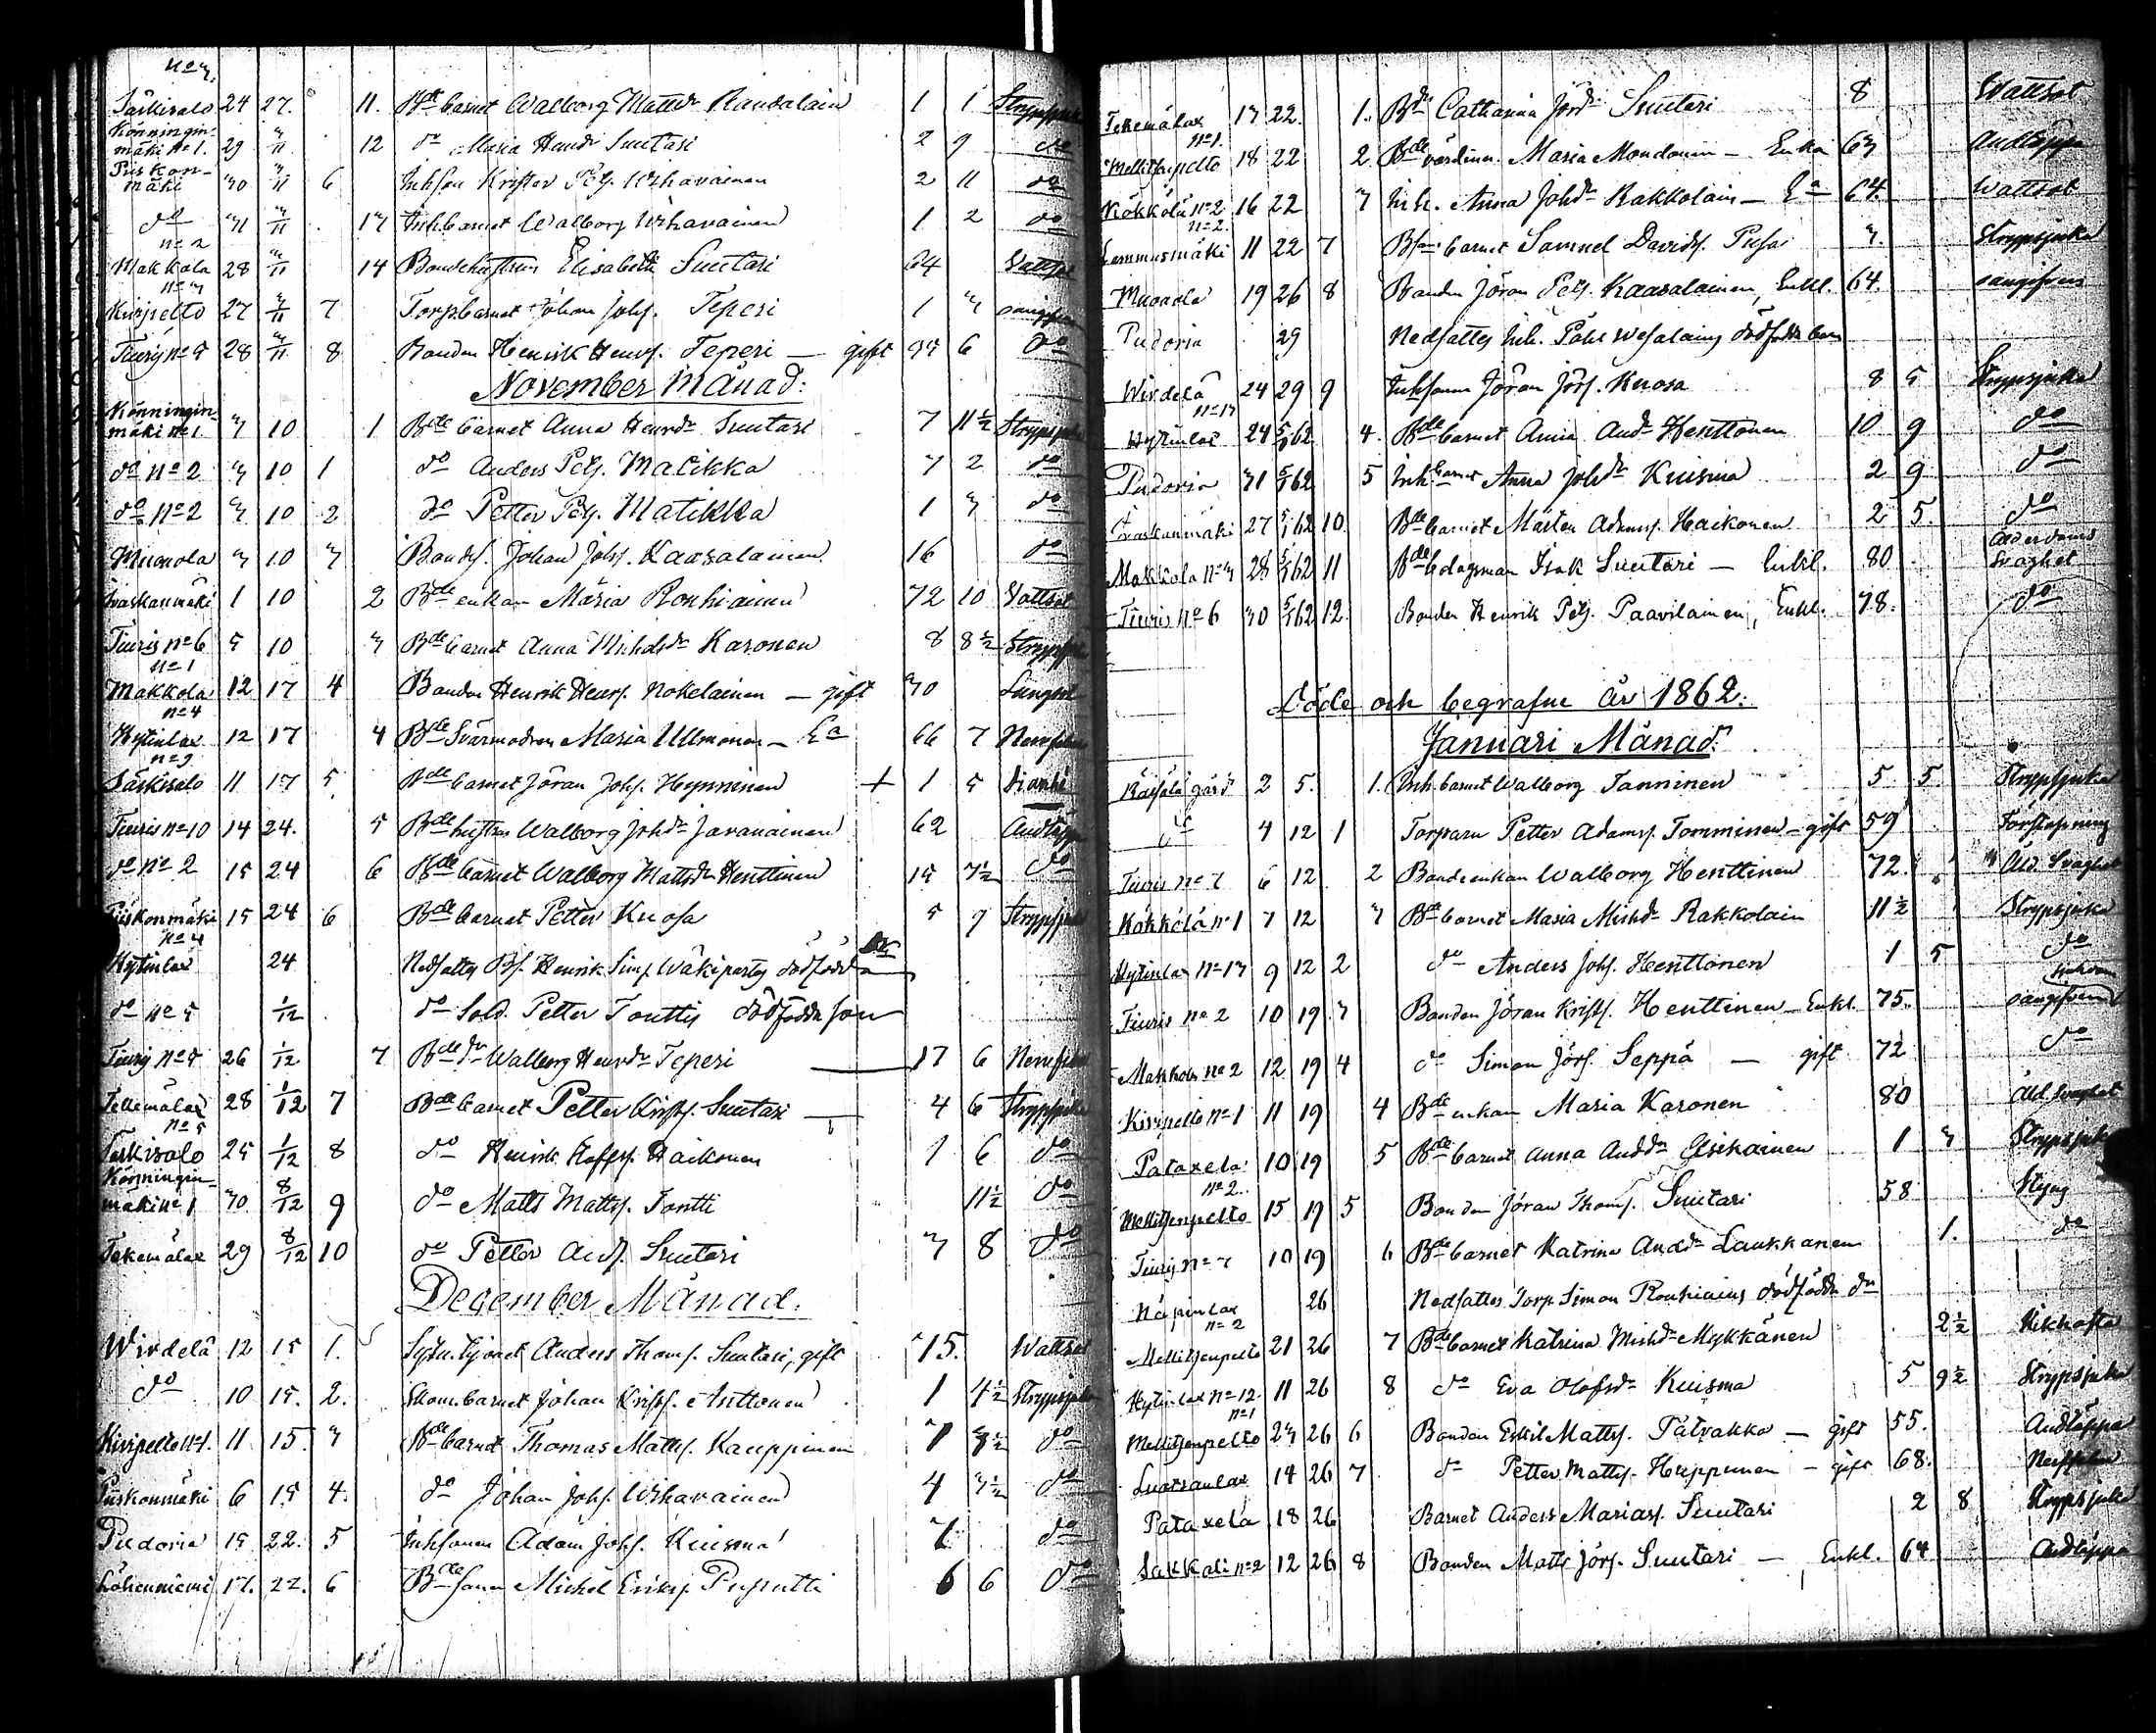 No 3.
Särkisalo 24 27. 11. Bde barnet Walborg Mattsdr Raudalain 1 1 Strypsjuka
Könningin-
mäki No 1. 29 3/11 12 do Maria Henrdr Suutari 2 9 do
Puskon-
mäki 30 3/11 6 Inhson Krister Pets. Urhavainen 2 11 do
do 31 3/11 13 Inhbarnet Walborg Urhavainen 1 2 do
No 2
Makkola 28 3/11 14 Bondehustrun Elisabeth Suutari 64 Wattsot
No 3
Kirjpelto 27 3/11 7 Torp.barnet Johan Johs. Teperi 1 3 oangifven
Tiurij No 5 28 3/11 8 Bonden Henrik Henrs. Teperi — gift 35 6 do
November Månad:
Könningin-
mäki No 1. 3 10 1 Bde barnet Anna Henrdr Suutari 7 11½ Strypsjuka
do No 2 3 10 1 do Anders Pets. Matikka 3 2 do
do No 2 3 10 2 do Petter Pets. Matikka 1 3 do
Muonola 3 10 3 Bonds. Johan Johs. Kaasalainen 16 do
Ivaskanmäki 1 10 2 Bde enkan Maria Ronkiainen 72 10 Wattsot
Tiuris No 6 5 10 3 Bde barnet Anna Michelsdr Karonen 8 8½ Strypsjuka
No 1
Makkola 12 17 4 Bonden Henrik Henrs. Nokelainen — gift 30 Lungsot
No 4
Hytinlax 12 17 4 Bde Svärmodren Maria Ullmonen — Ea 66 7 Nervfeber
No 9
Särkisalo 11 17 5 Bde barnet Jöran Johs. Heponinen + 1 5
Tiuris No 10 14 24. 5 Bde hustrun Walborg Johdr Javanainen 62 Andtäppa
do No 2 15 24 6 Bde barnet Walborg Mattsdr Henttinen 15 7½ do
Puskonmäki 15 24 6 Bde barnet Petter Kuosa 5 7 Strypsjuka
No 4
Hytinlax 24 Nedsattes Bs. Henrik Sims. Wäkipartes dödfödda
do No 5 1/12 do Sold. Petter Tonttis dödfödda son
Tiurij No 5 26 1/12 7 Bde dr Walborg Henrdr Teperi 17 6 Nervfeber
Tekemälax 28 1/12 7 Bde barnet Petter Krists. Suutari 4 6 Strypsjuka
No 5
Särkisalo 25 1/12 8 do Henrik Haikonen 1 6 do
Könningin-
mäki No 1 30 8/12 9 do Matts Matts. Tontti 11½ do
Tekemälax 29 8/12 10 do Petter Ands. Suutari 3 8 do
December Månad.
Wirdelä 12 15 1. Anders Thoms. Suutari, gift 35. Wattsot
do 10 15. 2. Skom.barnet Johan Krists. Anttonen 1 4½ Strypsjuka
Kivipelto No 1. 11 15. 3 Bde barnet Thomas Matts. Kauppinen 7 3½ do
Puskonmäki 6 15 4. do Johan Johs. Urhavainen 4 3½ do
Pudoria 15 22. 5 Inhsonen Adam Johs. Kuisma 7 do
Lähenniemi 17. 22. 6 Bde sonen Michel Eriks. Puputti 6 6 do
Tekemälax 17 22. 1. Bdr Catharina Jördr Suutari 8 Wattsot
No 1.
Mellitsenpelto 18 22 2. Bde värdinn. Maria Mondonin — Enka 63 Andtäppa
Kökkölä No 2 16 22 3 Inh. Anna Johdr Rakkolain — Ea 64. Wattsot
No 2.
Lemmusmäki 11 22 7 Bs. barnet Samuel Davids. Pusa 3. Strypsjuka
Muonola 19 26 8 Bonden Jöran Pets. Kaasalainen, Enkl. 64. oangifven
Pudoria 29 Nedsattes Inh. Påhl Wesalains dödfödda barn
Wirdelä 24 29 9 Inhsonen Jöran Jörs. Kuosa 8 5 Strypsjuka
No 13
Hytinlax 24 5/1 62 4. Bde barnet Anna Anddr Henttonen 10 9 do
Pudoria 31 5/1 62 5 Inh.barnet Anna Johdr Kuisma 2 9 do
Ivaskanmäki 27 5/1 62 10. Bde barnet Mårten Adams. Haikonen 2 5. do
Makkola No 3 28 5/1 62 11 Bde Isak Suutari — Enkl. 80 Ålderdoms Svaghet
Tiuris No 6 30 5/1 62 12. Bonden Henrik Pets. Paavilainen, Enkl. 78. do
Döde och begrafne år 1862.
Januari Månad.
Räisälä gård 2 5. 1. Inh barnet Walborg Tanninen 5 5. Strypsjuka
do 4 12 1 Torparn Petter Adams. Tomminen — gift 59 Förstoppning
Tiuris No 7 6 12 2 Bondeenkan Walborg Henttinen 72. Åld. Svaghet
Kökkölä No 1 7 12 3 Bde barnet Maria Michdr Rakkolain 11½ Strypsjuka
Hytinlax No 13 9 12 2 do Anders Johs. Henttonen 1 5 do
Tiuris No 2 10 19 3 Bonden Jöran Krists. Henttinen — Enkl. 75. sjukdom oangifven
Makkola No 2 12 19 4 do Simon Jörs. Seppä — gift 72 do
Kivipelto No 1 11 19 4 Bde enkan Maria Karonen 80 Åld. svaghet
Pataxela 10 19 5 Bde barnet Anna Anddr Eisikainen 1 3 Strypsjuka
No 2.
Mellitsenpelto 15 19 5 Bonden Jöran Thoms. Suutari 58 Styng
Tiurij No 7 10 19 6 Bde barnet Katrina Anddr Laukkanen 1. do
Näpinlax 26 Nedsattes Torp. Simon Ronkiains dödfödda dr
No 2
Mellitsenpelto 21 26 7 Bde barnet Katrina Michdr Mykkänen 2½ Kikhosta
Hytinlax No 12 11 26 8 do Eva Olofsdr Kuisma 5 9½ Strypsjuka
No 1
Mellitsenpelto 23 26 6 Bonden Eskil Matts. Patvakka — gift 55. Andtäppa
Luotsanlax 14 26 7 do Petter Matts. Huppunen — gift 68. Nervfeber
Pataxela 18 26 Barnet Anders Marias. Suutari 2 8 Strypsjuka
Sakkali No 2 12 26 8 Bonden Matts Jörs. Suutari — Enkl. 64 Andtäppa